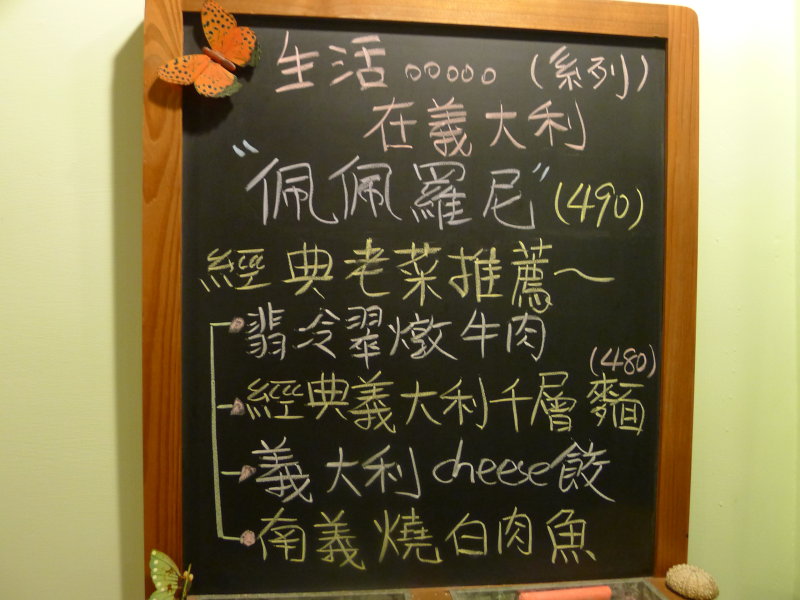 生活。。。。。(系列)
在義大利
"佩佩羅尼"(490)
經典老菜推薦～
翡冷翠燉牛肉
(480)
經典義大利千層麵
義大利cheese餃
南義燒白肉魚